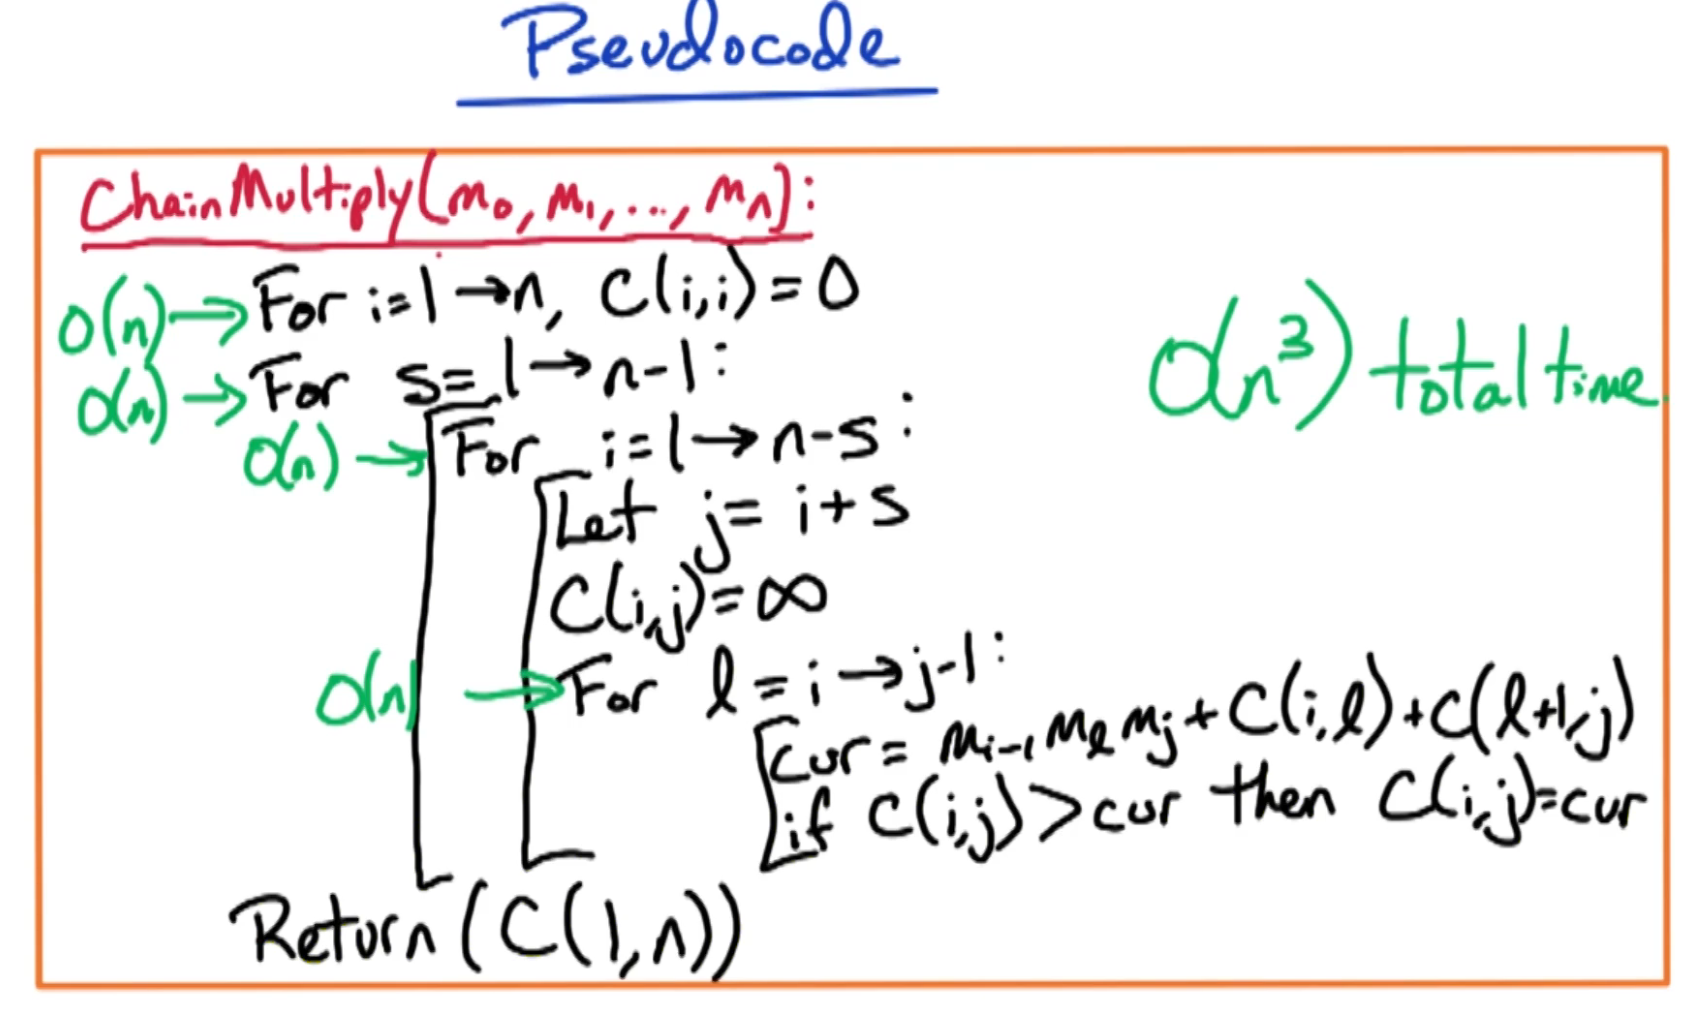 Pseudocode
ChainMultiply(m₀, m₁, ..., mₙ):
O(n) → For i=1→n, C(i,i)=0
O(n) → For s=1→n-1:
O(n) → For i=1→n-s:
Let j=i+s
C(i,j)=∞
O(n) → For l=i→j-1:
cur= mᵢ₋₁ mₗ mⱼ + C(i,l)+C(l+1,j)
if C(i,j)>cur then C(i,j)=cur
Return (C(1,n))
O(n³) total time.